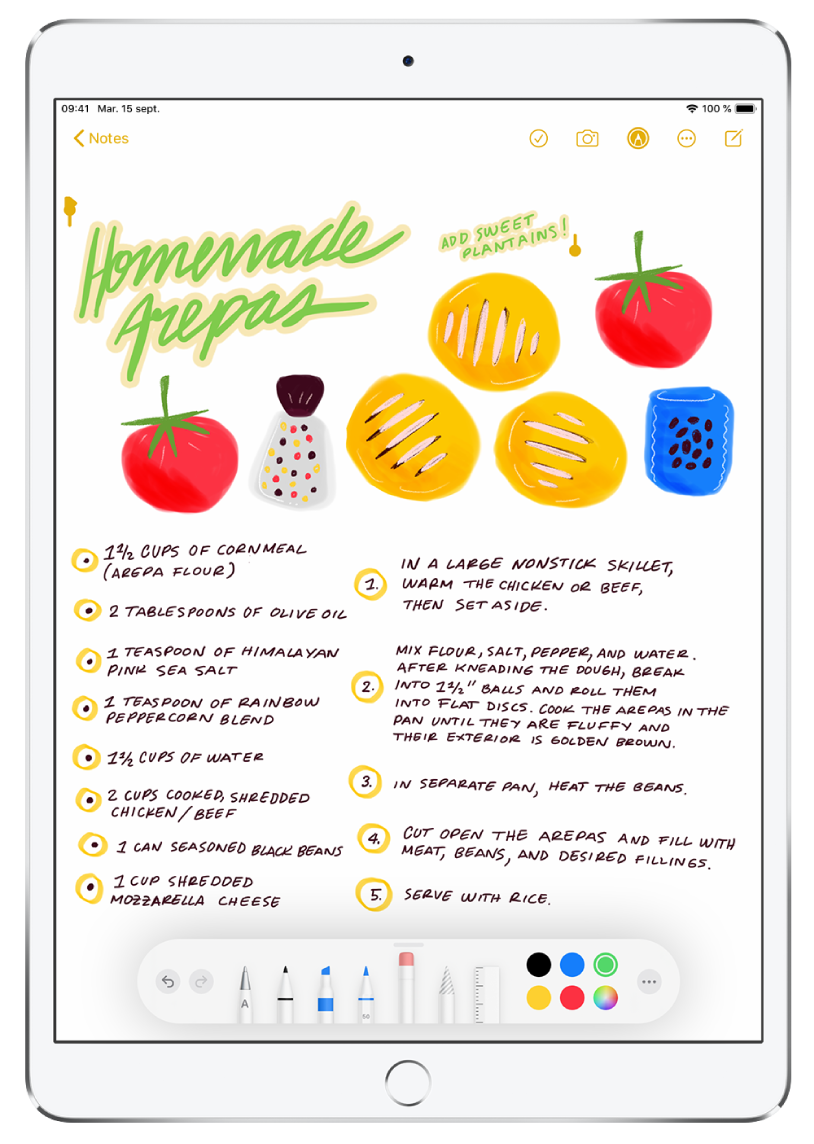 09:41 Mar. 15 sept.
100 %
Notes
Homemade
Arepas
ADD SWEET
PLANTAINS!
1 1/2 CUPS OF CORNMEAL
(AREPA FLOUR)
2 TABLESPOONS OF OLIVE OIL
1 TEASPOON OF HIMALAYAN
PINK SEA SALT
1 TEASPOON OF RAINBOW
PEPPERCORN BLEND
1 1/2 CUPS OF WATER
2 CUPS COOKED, SHREDDED
CHICKEN/BEEF
1 CAN SEASONED BLACK BEANS
1 CUP SHREDDED
MOZZARELLA CHEESE
1. IN A LARGE NONSTICK SKILLET,
WARM THE CHICKEN OR BEEF,
THEN SET ASIDE.
2. MIX FLOUR, SALT, PEPPER, AND WATER.
AFTER KNEADING THE DOUGH, BREAK
INTO 1 1/2" BALLS AND ROLL THEM
INTO FLAT DISCS. COOK THE AREPAS IN THE
PAN UNTIL THEY ARE FLUFFY AND
THEIR EXTERIOR IS GOLDEN BROWN.
3. IN SEPARATE PAN, HEAT THE BEANS.
4. CUT OPEN THE AREPAS AND FILL WITH
MEAT, BEANS, AND DESIRED FILLINGS.
5. SERVE WITH RICE.
A
50